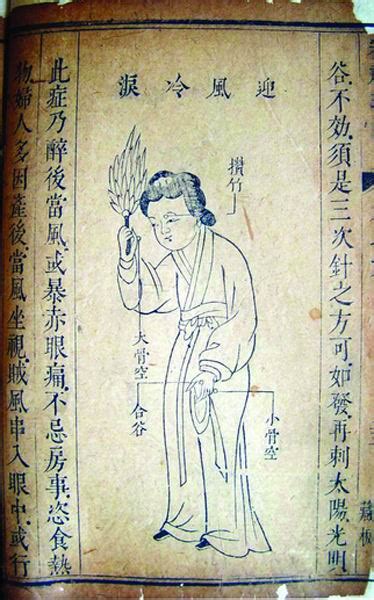 谷.不效.須是三次針之方可.如發.再刺太陽.光明
迎風冷淚
攅竹
大骨空
合谷
小骨空
此症乃醉後當風.或暴赤眼痛.不忌房事.恣食熱
物.婦人多因產後當風坐視.賊風串入眼中.或行
藏板